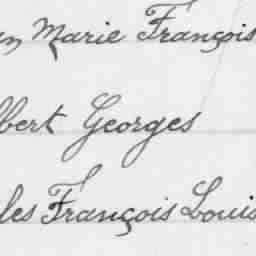 an Marie François
lbert Georges
les François Louis